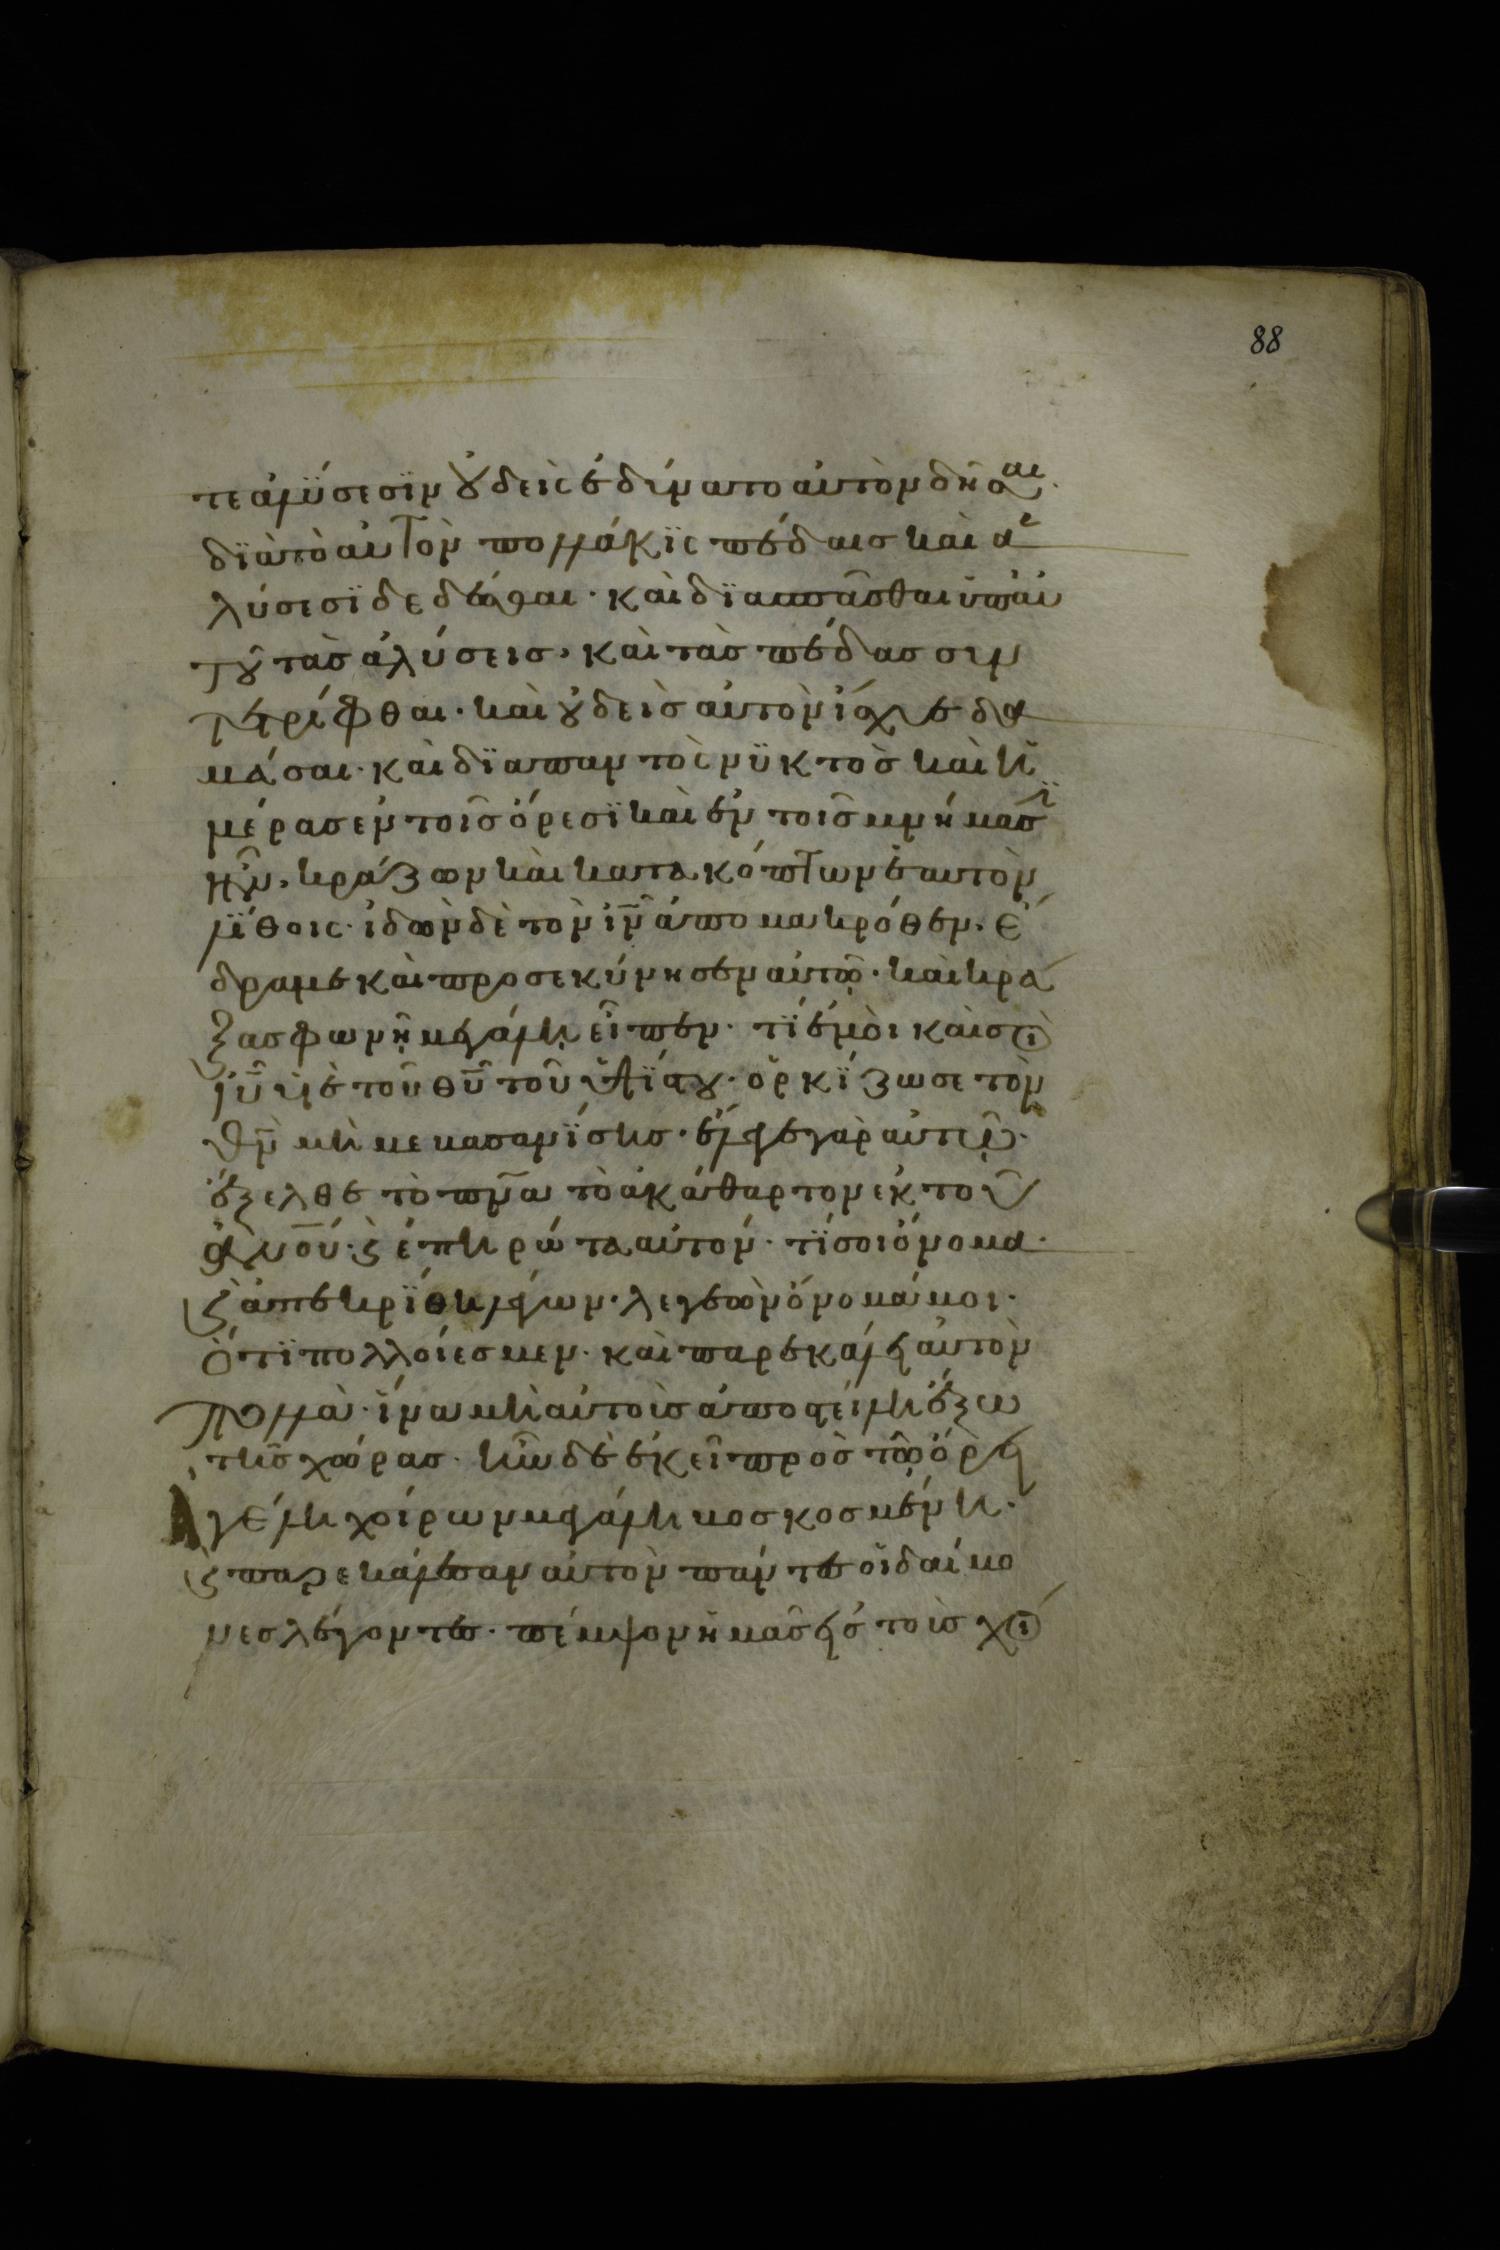 88
τε ἁλύσεσϊν οὐδεὶς ἐδύνατο αὐτὸν δῆσαι·
δϊὰ τὸ αὐτὸν πολλάκϊς πέδαισ καὶ ἁ
λύσεσϊ δεδέσθαι· καὶ δϊασπᾶσθαι ὑπ' αὐ
τοῦ τὰσ ἁλύσεισ, καὶ τὰσ πέδασ συν
τετρίφθαι· καὶ οὐδεὶσ αὐτὸν ἴσχυε δα
μάσαι· καὶ δϊαπαντὸς νϋκτὸσ καὶ ἡ
μέρασ ἐν τοῖσ ὄρεσϊ καὶ ἐν τοῖσ μνήμασϊ
ἦν, κράζων καὶ κατακόπτων ἑαυτὸν
λΐθοις· ἰδὼν δὲ τὸν ἰν̄ ἀπο μακρόθεν, ἔ
δραμε καὶ προσεκύνησεν αὐτῷ· καὶ κρά
ξασ φωνῇ μεγάλη εἶπεν· τΐ ἐμοὶ καὶ σοὶ
ἰῡ υἱὲ τοῦ θῡ τοῦ ὑψΐστου· ὁρκΐζω σε τὸν
θν̄ μὴ με βασανΐσησ· ἔλεγε γὰρ αὐτῷ·
ἔξελθε τὸ πν̄α τὸ ἀκάθαρτον ἐκ τοῦ
ἀνου̅· ϗ ἐπηρώτα αὐτόν· τΐ σοι ὄνομα·
ϗ ἀπεκρΐθη λέγων· λεγεὼν ὄνομά μοι·
ὅτϊ πολλοί ἐσμεν· καὶ παρεκάλει αὐτὸν
πολλὰ· ἵνα μὴ αὐτοὺσ ἀποστείλη ἔξω
τῆσ χώρασ· ἦν δὲ ἐκεῖ πρὸσ τῷ ὄρει
ἀγέλη χοίρων μεγάλη βοσκομένη·
ϗ παρεκάλεσαν αὐτὸν πάντεσ οἱ δαίμο
νεσ λέγοντεσ· πέμψον ἡμᾶσ εἰσ τοὺσ χοί